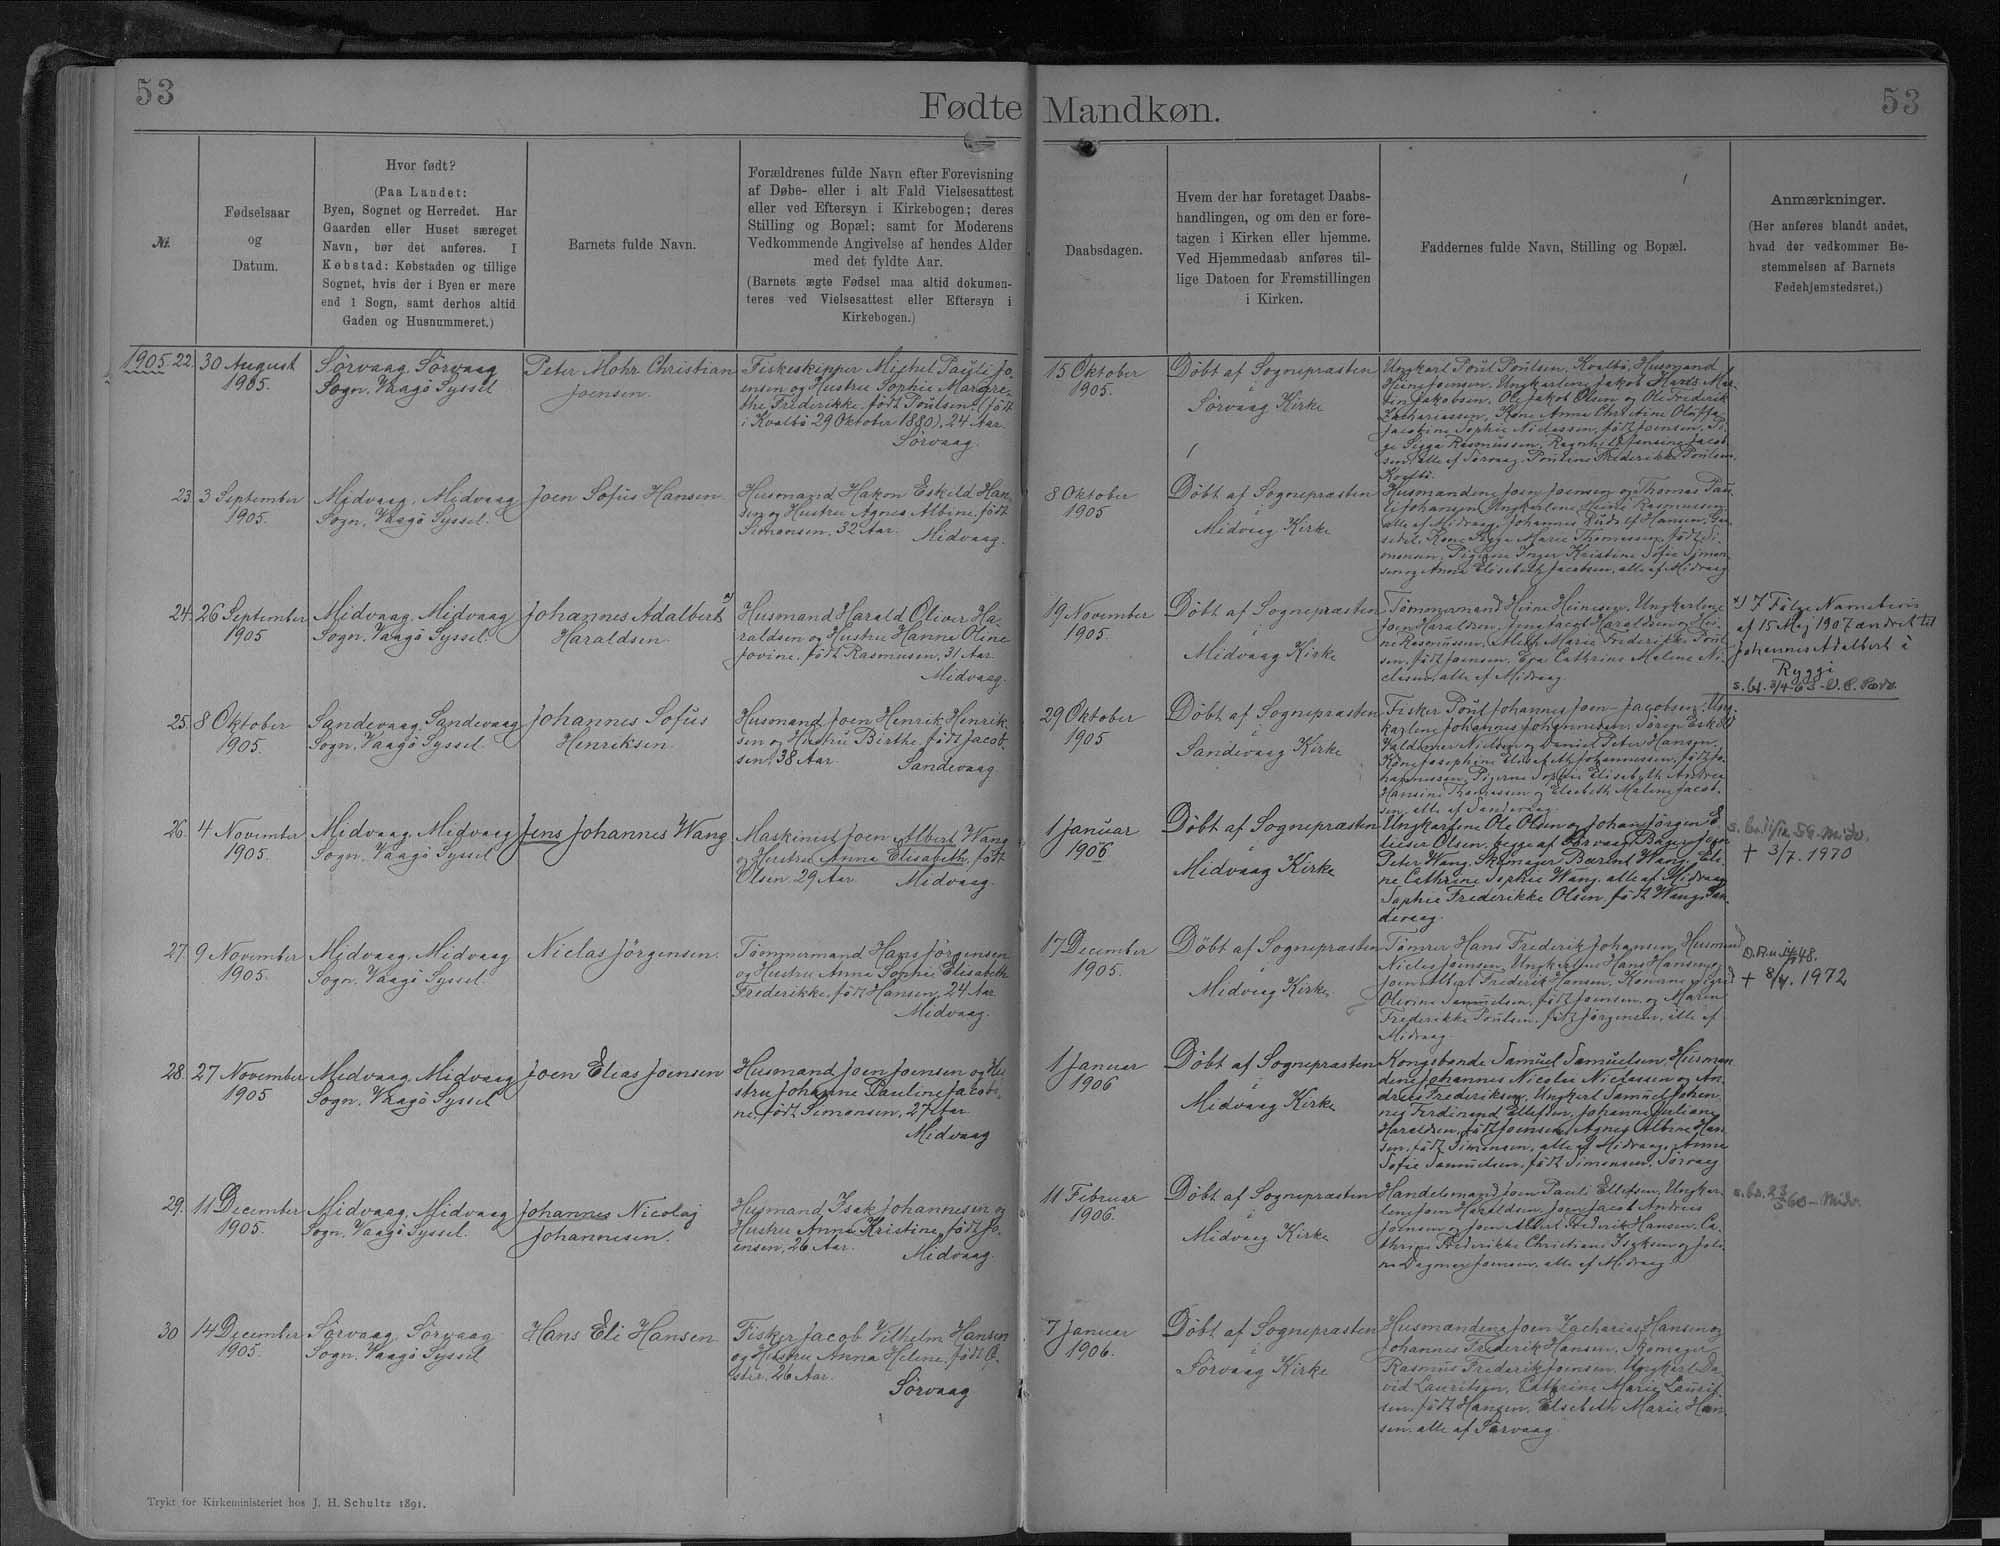 53
Fødte Mandkøn.
53
Nr.
Fødselsaar
og
Datum.
Hvor født?
(Paa Landet:
Byen, Sognet og Herredet. Har
Gaarden eller Huset særeget
Navn, bør det anføres. I
Købstad: Købstaden og tillige
Sognet, hvis der i Byen er mere
end 1 Sogn, samt derhos altid
Gaden og Husnummeret.)
Barnets fulde Navn.
Forældrenes fulde Navn efter Forevisning
af Døbe- eller i alt Fald Vielsesattest
eller ved Eftersyn i Kirkebogen; deres
Stilling og Bopæl; samt for Moderens
Vedkommende Angivelse af hendes Alder
med det fyldte Aar.
(Barnets ægte Fødsel maa altid dokumen-
teres ved Vielsesattest eller Eftersyn i
Kirkebogen.)
Daabsdagen.
Hvem der har foretaget Daabs-
handlingen, og om den er fore-
tagen i Kirken eller hjemme.
Ved Hjemmedaab anføres til-
lige Datoen for Fremstillingen
i Kirken.
Faddernes fulde Navn, Stilling og Bopæl.
Anmærkninger.
(Her anføres blandt andet,
hvad der vedkommer Be-
stemmelsen af Barnets
Fødehjemstedsret.)
1905. 22.
30 August
1905.
Sörvaag, Sörvaag
Sogn, Vaagö Syssel
Peter Mohr Christian
Joensen.
Fiskeskipper Michel Pauli Jo-
ensen og Hustru Sophie Margre-
the Frederikke, født Poulsen (født
i Kvalbö 29 Oktober 1880), 24 Aar.
Sörvaag.
15 Oktober
1905.
Döbt af Sognepræsten
i
Sörvaag Kirke
Ungkarl Poul Poulsen, Kvalbö, Husmand
Heine Joensen, Ungkarlene Jakob Mar-
tin Jakobsen, Ole Jakob Olsen og Ole Frederik
Zachariassen, Kone Anna Christine
Jacobine Sophie Niclassen, født Joensen, Pi-
ge Sigga Rasmussen, Ragnhild Jensine Jacob-
sen, alle af Sörvaag, Pouline Frederikke Poulsen,
Kvalbö.
23.
3 September
1905.
Midvaag, Midvaag
Sogn, Vaagö Syssel.
Joen Sofus Hansen
Husmand Hakon Eskild Han-
sen og Hustru Agnes Albine, født
Simonsen, 32 Aar. Midvaag.
8 Oktober
1905
Döbt af Sognepræsten
i
Midvaag Kirke
Husmændene Joen Joensen og Thomas Pau-
li Johansen, Ungkarlene Heine Rasmussen,
alle af Midvaag, Johannes Hansen, Ga-
sedal, Kone Sigga Marie Thomassen, født Si-
monsen, Pigerne Inger Kristine Sofie Simon-
sen og Anna Elisabeth Jacobsen, alle af Midvaag
24.
26 September
1905
Midvaag, Midvaag
Sogn, Vaagö Syssel.
Johannes Adalbert *)
Haraldsen.
Husmand Harald Oliver Ha-
raldsen og Hustru Hanne Oline
Jovine, født Rasmusen, 31 Aar
Midvaag.
19 November
1905.
Döbt af Sognepræsten
i
Midvaag Kirke
Tömmermand Heine Heinesen, Ungkarlene
Joen Haraldsen, Jens Jacob Haraldsen og Hei-
ne Rasmussen, Marie Frederikke Poul-
sen, født Joensen, Eva Cathrine Malene Ni-
clasen, alle af Midvaag.
*) I Følge Navnebevis
af 15 Maj 1907 ændret til
Johannes Adalbert á
Ryggi
25.
8 Oktober
1905.
Sandevaag, Sandevaag
Sogn, Vaagö Syssel.
Johannes Sofus
Henriksen.
Husmand Joen Henrik Henrik-
sen og Hustru Birthe, født Jacob-
sen, 38 Aar. Sandevaag
29 Oktober
1905
Döbt af Sognepræsten
i
Sandevaag Kirke
Fisker Poul Johannes Joen-Jacobsen, Ung-
karlene Johannes Johannesen, Sören Eskild
Valdemar Nielsen og Daniel Peter Hansen,
Kone Josephine Elisabeth Johannessen, født Jo-
hannessen, Pigerne Sophie Elisabeth Andrea
Hansine Thomassen og Elsebeth Malene Jacob-
sen, alle af Sandevaag.
26.
4 November
1905.
Midvaag, Midvaag
Sogn, Vaagö Syssel
Jens Johannes Wang
Maskinist Joen Albert Wang
og Hustru Anna Elisabeth, født
Olsen, 29 Aar. Midvaag.
1 Januar
1906
Döbt af Sognepræsten
i
Midvaag Kirke
Ungkarlene Ole Olsen og Johan Jörgen E-
lieser Olsen, begge af Sörvaag, Bager Jogvan
Peter Wang, Skomager Bærent Wang, Eli-
ne Cathrine Sophie Wang, alle af Midvaag
Sophie Frederikke Olsen, født Wang, San-
devaag.
† 3/7. 1970
27
9 November
1905.
Midvaag, Midvaag
Sogn, Vaagö Syssel.
Niclas Jörgensen.
Tömmermand Hans Jörgensen
og Hustru Anna Sophie Elisabeth
Frederikke, født Hansen, 24 Aar
Midvaag.
17 December
1905.
Döbt af Sognepræsten
i
Midvaag Kirke
Tömrer Hans Frederik Johansen, Husmand
Niclas Joensen, Ungkarlene Hans Hansen og
Joen Albert Frederik Hansen, Konerne Sigrid
Olevine Samuelsen, født Joensen, og Maren
Frederikke Poulsen, født Jörgensen, alle af
Midvaag.
† 8/4. 1972
28.
27 November
1905
Midvaag, Midvaag
Sogn, Vaagö Syssel
Joen Elias Joensen
Husmand Joen Joensen og Hu-
stru Johanne Pauline Jacobi-
ne, født Simonsen, 27 Aar
Midvaag
1 Januar
1906
Döbt af Sognepræsten
i
Midvaag Kirke
Kongsbonde Samuel Samuelsen, Husmæn-
dene Johannes Nicolai Niclassen og An-
dreas Frederiksen, Ungkarl Samuel Johan-
nes Ferdinand Ellefsen, Johanne Juliane
Haraldsen, født Joensen, Agnes Albine Han-
sen, født Simonsen, alle af Midvaag, Anne
Sofie Samuelsen, født Simonsen, Sörvaag
29.
11 December
1905.
Midvaag, Midvaag
Sogn, Vaagö Syssel.
Johannes Nicolaj
Johannesen.
Husmand Isak Johannesen og
Hustru Anna Kristine, født Jo-
ensen, 26 Aar. Midvaag.
11 Februar
1906.
Döbt af Sognepræsten
i
Midvaag Kirke
Handelsmand Joen Pauli Ellefsen, Ungkar-
lene Joen Haraldsen, Joen Jacob Andreas
Joensen og Joen Albert Frederik Hansen, Ca-
thrine Frederikke Christiane Isaksen og
Dagmar Joensen, alle af Midvaag
30
14 December
1905.
Sörvaag, Sörvaag
Sogn, Vaagö Syssel
Hans Eli Hansen
Fisker Jacob Vilhelm Hansen
og Hustru Anna Helene, født Ö-
ster, 26 Aar.
Sörvaag
7 Januar
1906.
Döbt af Sognepræsten
i
Sörvaag Kirke
Husmændene Joen Zacharias Hansen og
Johannes Frederik Hansen, Skomager
Rasmus Frederik Joensen, Ungkarl Da-
vid Lauritsen, Cathrine Marie Laurit-
sen, født Hansen, Elsebeth Marie Han-
sen, alle af Sörvaag.
Trykt for Kirkeministeriet hos J. H. Schultz 1891.